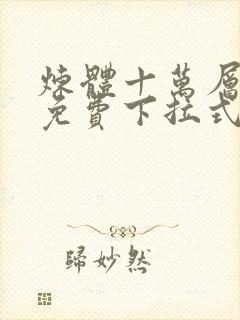 煉體十萬層
免費下拉式
歸妙然